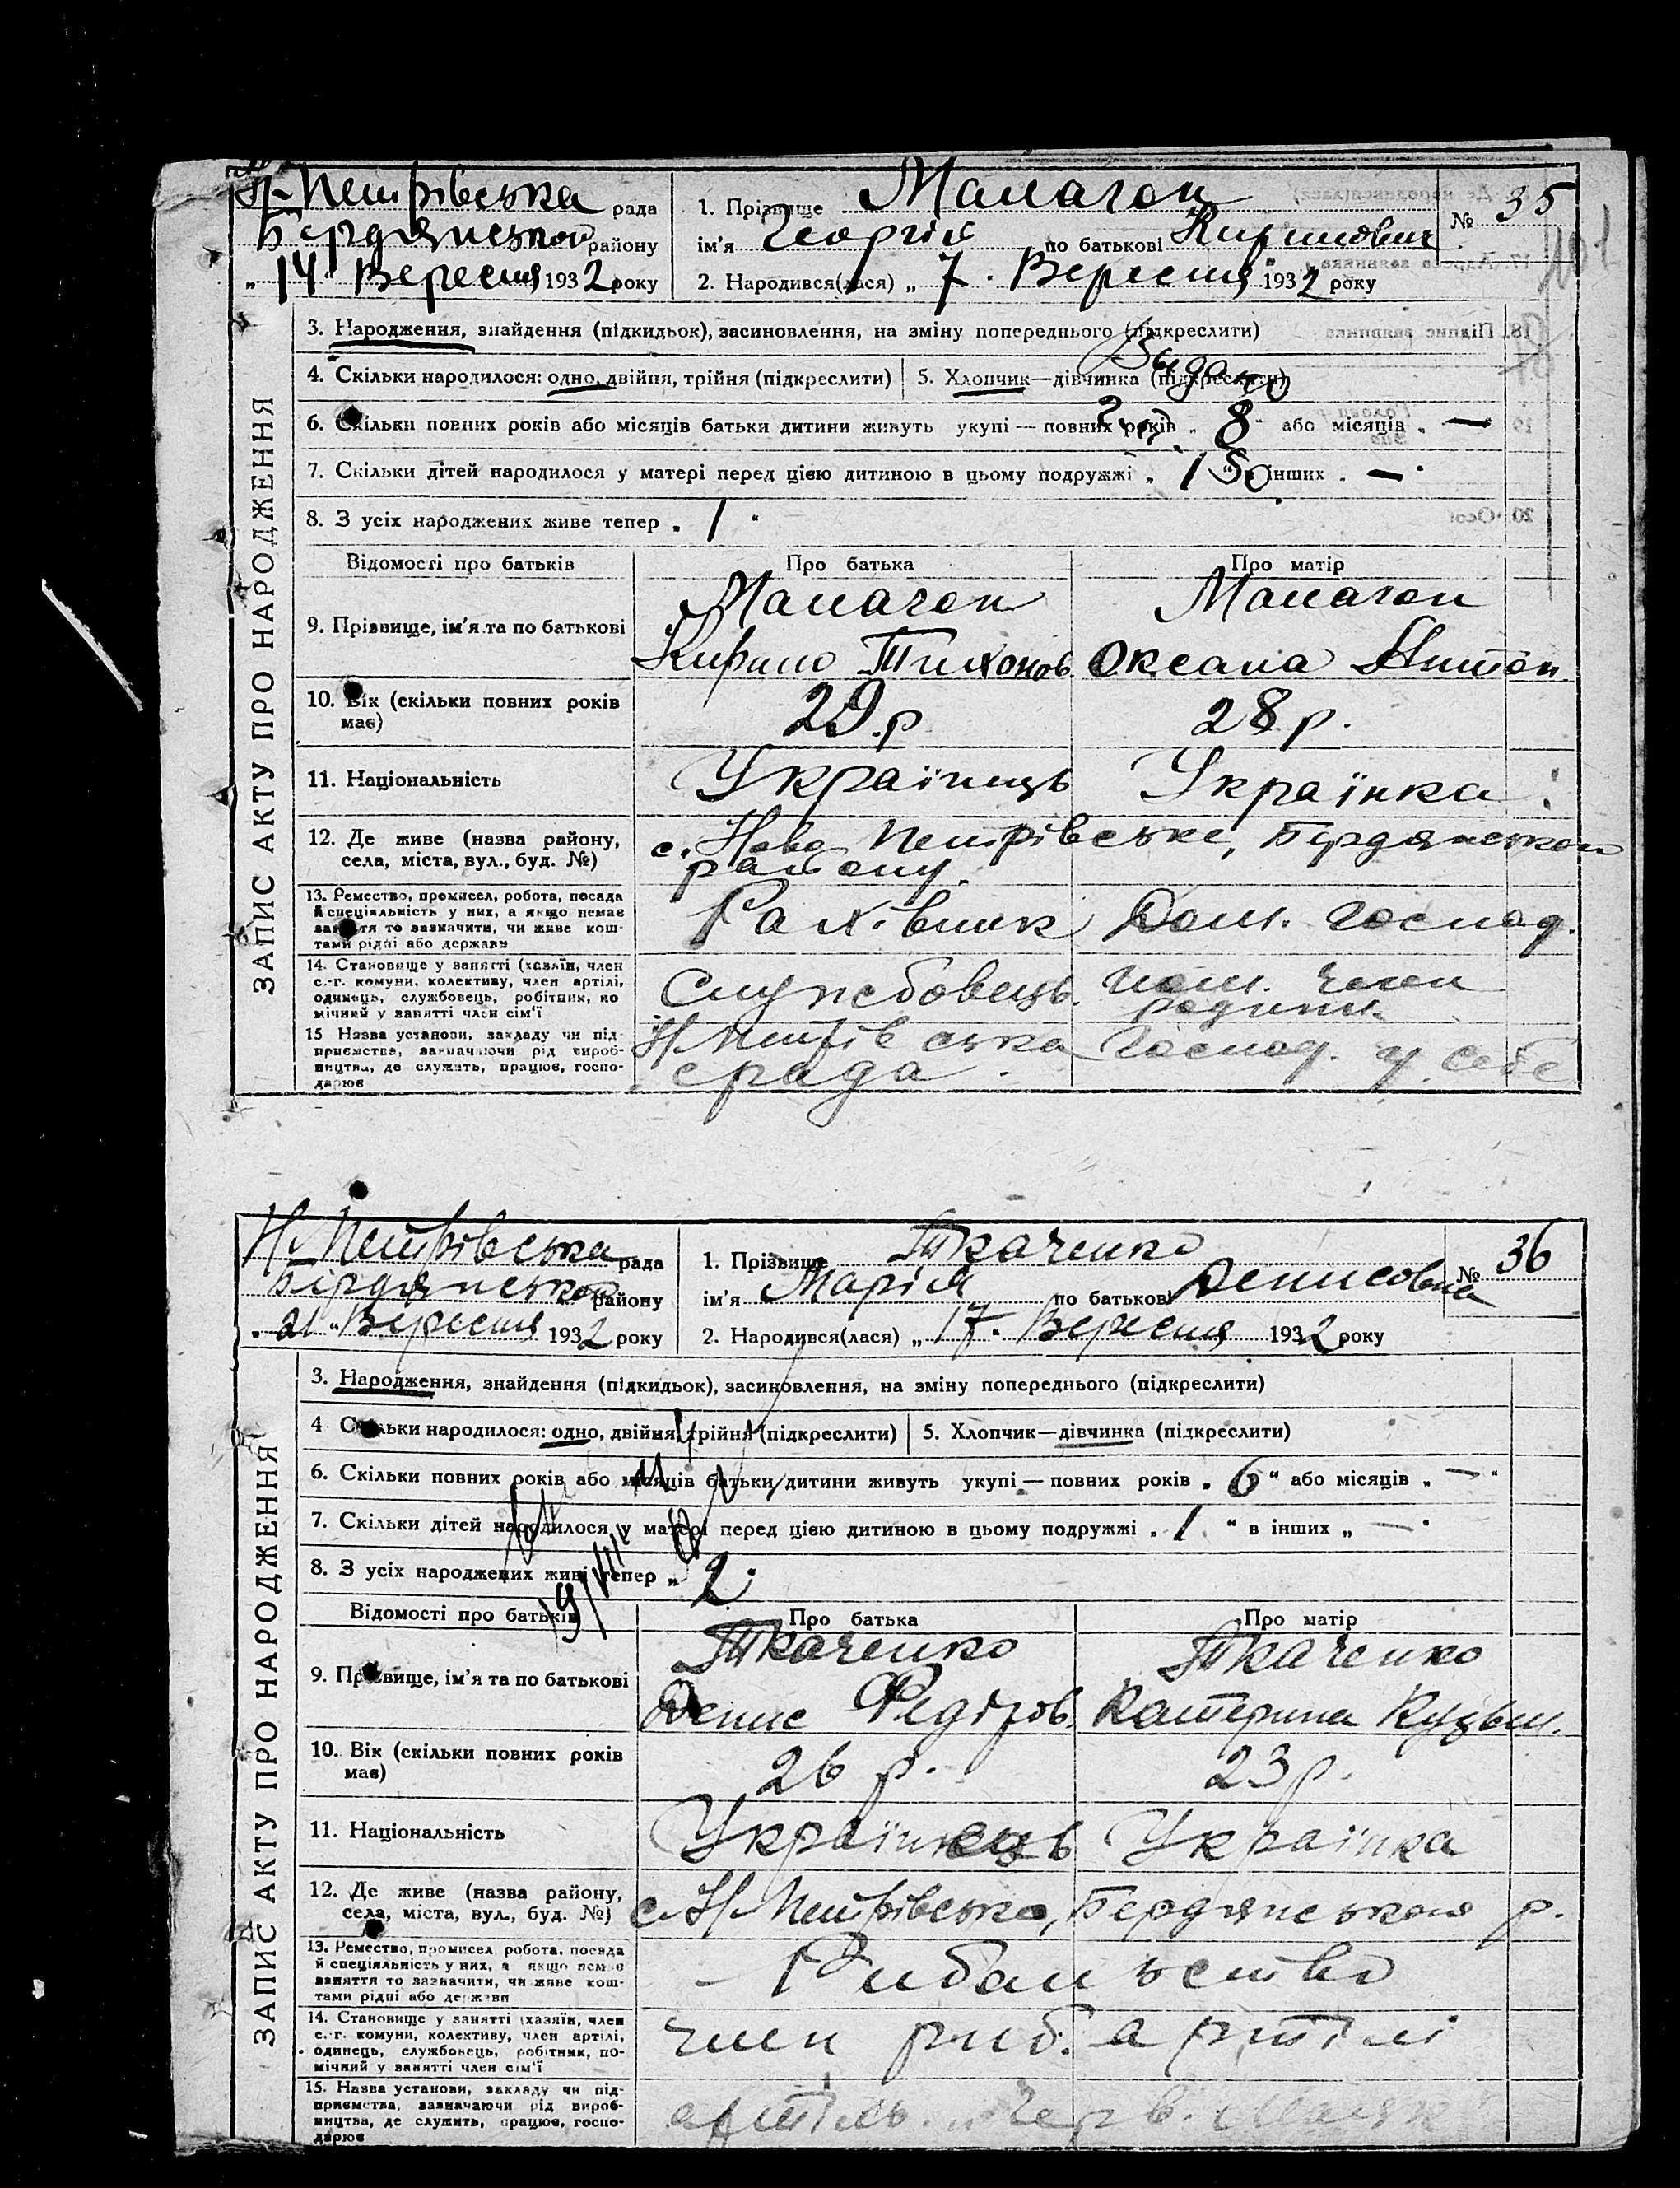 Н-Петрівська рада
Бердянського району
„14" Вересня 1932 року
1. Прізвище Малагон
ім'я Георгій по батькові Кирилович
2. Народився(лася) „7" Вересня 1932 року
№ 35
ЗАПИС АКТУ ПРО НАРОДЖЕННЯ
3. Народження, знайдення (підкидьок), засиновлення, на зміну попереднього (підкреслити)
4. Скільки народилося: одно, двійня, трійня (підкреслити)
5. Хлопчик—дівчинка (підкреслити)
6. Скільки повних років або місяців батьки дитини живуть укупі — повних років „8" або місяців „—
7. Скільки дітей народилося у матері перед цією дитиною в цьому подружжі „1" в інших „—"
8. З усіх народжених живе тепер „1"
Відомості про батьків
Про батька
Про матір
9. Прізвище, ім'я та по батькові
Малагон
Кирило Тихонов
Малагон
Оксана Антон
10. Вік (скільки повних років
має)
29 р
28 р.
11. Національність
Українець
Українка
12. Де живе (назва району,
села, міста, вул., буд. №)
с. Ново Петрівське, Бердянського
району.
13. Ремество, промисел, робота, посада
й спеціяльність у них, а якщо немає
заняття то зазначити, чи живе кош-
тами рідні або держави
Рахівник
Дом. господ.
14. Становище у занятті (хазяїн, член
с.-г. комуни, колективу, член артілі,
одинець, службовець, робітник, по
мічний у занятті член сім'ї
Службовець.
пом. член
родини.
15 Назва установи, закладу чи під-
приємства, зазначаючи рід вироб-
ництва, де служить, працює, госпо-
дарює
Н Петрівська
с рада.
Господ. у себе
Н-Петрівська рада
Бердянського району
„21" Вересня 1932 року
1. Прізвище Ткаченко
ім'я Марія по батькові Денисовна
2. Народився(лася) „17" Вересня 1932 року
№ 36
ЗАПИС АКТУ ПРО НАРОДЖЕННЯ
3. Народження, знайдення (підкидьок), засиновлення, на зміну попереднього (підкреслити)
4 Скільки народилося: одно, двійня, трійня (підкреслити)
5. Хлопчик—дівчинка (підкреслити)
6. Скільки повних років або місяців батьки дитини живуть укупі — повних років „6" або місяців „—"
7. Скільки дітей народилося у матері перед цією дитиною в цьому подружжі „1" в інших „—"
8. З усіх народжених живі тепер „2"
Відомості про батьків
Про батька
Про матір
9. Прізвище, ім'я та по батькові
Ткаченко
Денис Федоров.
Ткаченко
Катерина Кузьм.
10. Вік (скільки повних років
має)
26 р.
23 р.
11. Національність
Українець
Українка
12. Де живе (назва району,
села, міста, вул., буд. №)
с. Н Петрівське, Бердянського р.
13. Ремество, промисел робота, посада
й спеціяльність у них, а якщо немає
заняття то зазначити, чи живе кош-
тами рідні або держави
– Рибальство
14. Становище у занятті (хазяїн, член
с.-г. комуни, колективу, член артілі,
одинець, службовець, робітник, по-
мічний у занятті член сім'ї
член риб. артілі
15. Назва установи, закладу чи під-
приємства, зазначаючи рід вироб-
ництва, де служить, працює, госпо-
дарює
артіль „Черв. Маяк"